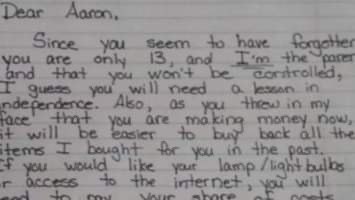 Dear Aaron,
Since you seem to have forgotten
you are only 13, and I'm the parent
and that you won't be controlled,
I guess you will need a lesson in
independence. Also, as you threw in my
face that you are making money now,
it will be easier to buy back all the
items I bought for you in the past.
If you would like your lamp/lightbulbs
or access to the internet, you will
need to pay your share of costs